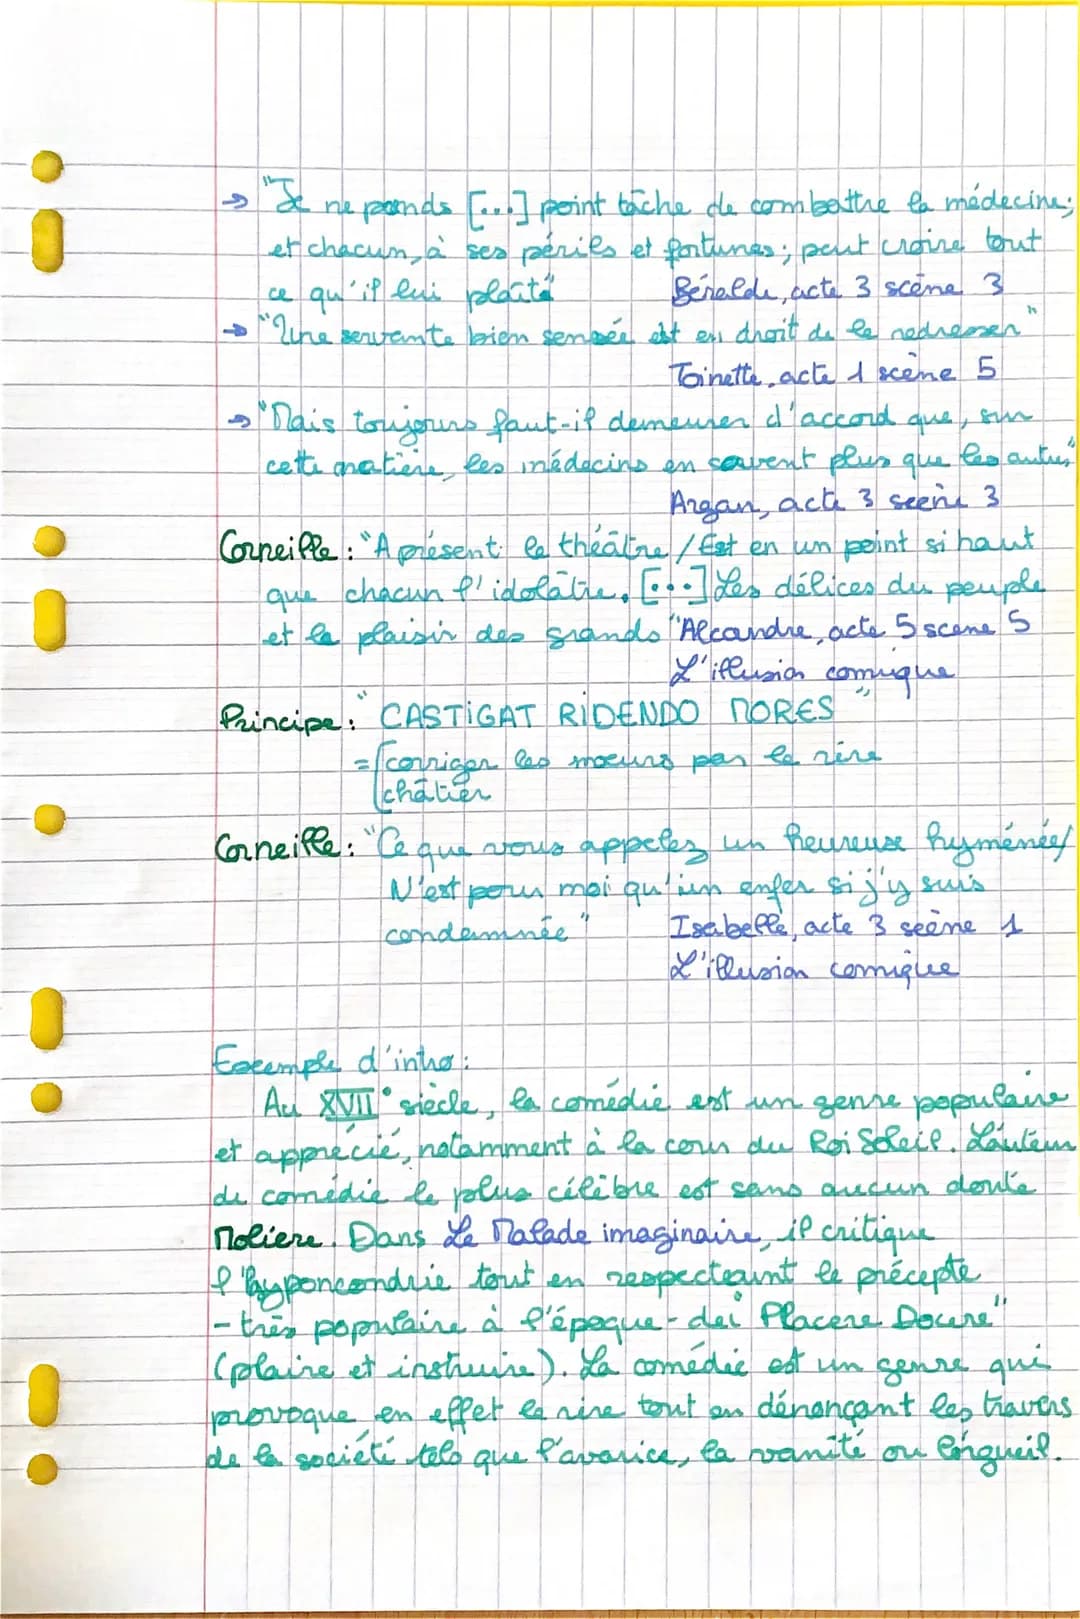 → "Je ne prends [...] point tâche de combattre la médecine;
et chacun, à ses périls et fortunes; peut croire tout
ce qu'il lui plaîta"
Béralde, acte 3 scène 3
→ "Une servante bien sensée est en droit de le redresser"
Toinette, acte 1 scène 5
→ "Mais toujours faut-il demeurer d'accord que, sur
cette matière, les médecins en savent plus que les autres"
Argan, acte 3 scène 3
Corneille : "A présent le théâtre / Est en un point si haut
que chacun l'idolâtre. [...] Les délices du peuple
et le plaisir des grands" Alcandre, acte 5 scene 5
L'illusion comique
Principe : "CASTIGAT RIDENDO MORES"
= [corriger les moeurs par le rire
[châtier
Corneille : "Ce que vous appelez un heureuse hyménée/
N'est pour moi qu'un enfer si j'y suis
condamnée"
Isabelle, acte 3 scène 1
L'illusion comique
Exemple d'intro :
Au XVII° siècle, la comédie est un genre populaire
et apprécié, notamment à la cour du Roi Soleil. L'auteur
de comédie le plus célèbre est sans aucun doute
Molière. Dans Le Malade imaginaire, il critique
l'hyponcondrie tout en respectaint le précepte
- très populaire à l'époque - dei Placere Docere"
(plaire et instruire). La comédie est un genre qui
provoque en effet le rire tout en dénonçant les travers
de la société tels que l'avarice, la vanité ou l'orgueil.